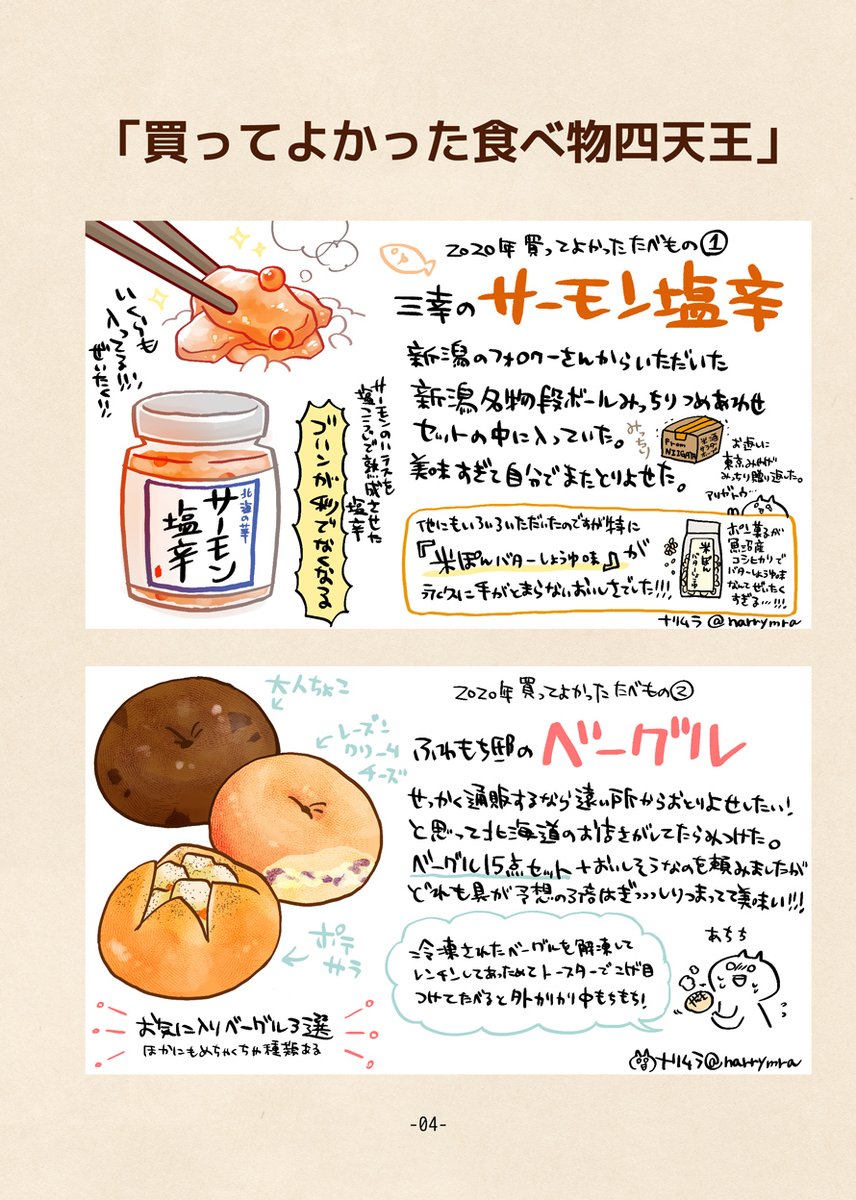 「買ってよかった食べ物四天王」
2020年買ってよかったたべもの①
三幸のサーモン塩辛
いくらも
入ってる!!!
ぜいたく!!
北海の華
サーモン
塩辛
サーモンのハラスを
糀で熟成させた
塩辛
ゴハンが秒でなくなる
新潟のフォロワーさんからいただいた
新潟名物の段ボールみっちりつめあわせ
セットの中に入っていた。
みっちり
美味すぎて自分でまたとりよせた。
From
NIIGATA
お返しに
東京みやげ
みっちり贈り返した。
アリガトウ…
他にもいろいろいただいたのですが特に
『米ぽんバターしょうゆ味』が
永久に手がとまらないおいしさでした!!!
米ぽん
バターしょうゆ
ポン菓子が
魚沼産
コシヒカリで
バターしょうゆ味
なんてぜいたく
すぎる…!!!
ナリムラ@narrymra
2020年買ってよかったたべもの②
ふわもち邸のベーグル
大人ちょこ
レーズン
クリーム
チーズ
ポテ
サラ
お気に入りベーグル3選
ほかにもめちゃくちゃ種類ある
せっかく通販するなら遠い所からおとりよせしたい!
と思って北海道のお店さがしてたらみつけた。
ベーグル15点セット+おいしそうなのを頼みましたが
どれも具が予想の3倍はぎっっっしりつまってて美味い!!!
冷凍されたベーグルを解凍して
レンチンしてあっためてトースターでこげ目
つけてたべると外かりかり中もちもち!
あちち
ナリムラ@narrymra
-04-